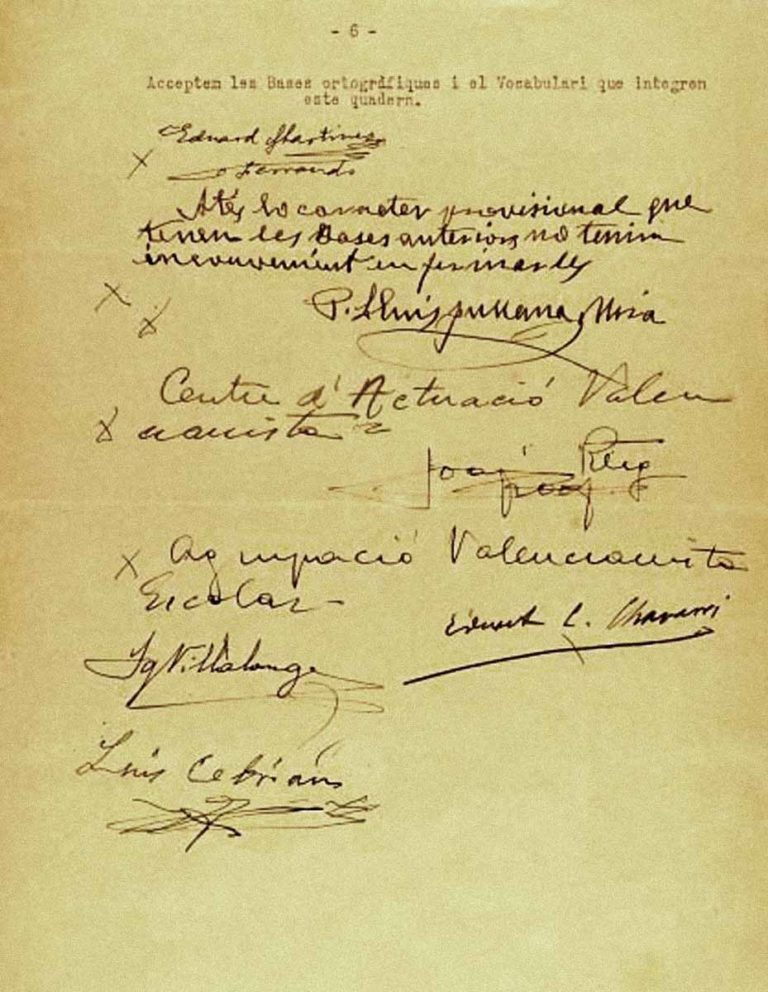 - 6 -
Acceptem les Bases ortogràfiques i el Vocabulari que integren
este quadern.
Eduard Martinez
Ferrando
Atés lo caracter provisional que
tenen les Bases anteriors no tenim
inconvenient en firmarles
P. Lluis Fullana Mira
Centre d'Actuació Valen
cianista
Joaq Reig
Agrupació Valencianista
Escolar
Eduart L. Chavarri
Ig Villalonga
Luis Cebrián